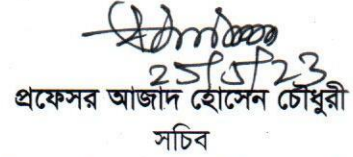 25/5/23
প্রফেসর আজাদ হোসেন চৌধুরী
সচিব